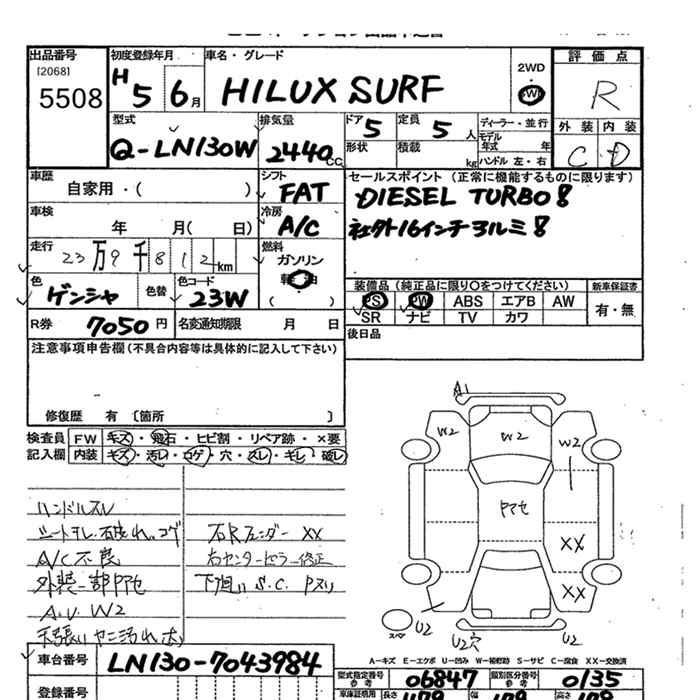 出品番号
[2068]
5508
初度登録年月
H5 6月
車名・グレード
HILUX SURF
2WD
4WD
評価点
R
外装 内装
C D
型式
Q-LN130W
排気量
2440cc
ドア 5
定員 5人
形状
積載 kg
ディーラー・並行
モデル年式 年
ハンドル 左・右
車歴
自家用・( )
シフト
FAT
セールスポイント (正常に機能するものに限ります)
DIESEL TURBO!
社外16インチアルミ!
車検
年 月( 日)
冷房
A/C
走行
23万9千812km
燃料
ガソリン
軽油
( )
色
ゲンシャ
色替
色コード
23W
装備品 (純正品に限り○をつけてください)
PS PW ABS エアB AW
SR ナビ TV カワ
新車保証書
有・無
R券 7050円
名変通知期限 月 日
後日品
注意事項申告欄(不具合内容等は具体的に記入して下さい)
修復歴 有 〔箇所 〕
検査員記入欄
FW キズ・飛石・ヒビ割・リペア跡・×要
内装 キズ・汚レ・コゲ・穴・スレ・キレ・破レ
ハンドルスレ
シートヨレ.破れ.コゲ
A/C不良
外装一部Pアセ
A.U.W2
天張りヤニ汚れ大
右Rフェンダー XX
右センターピラー修正
下廻り S.C. Pヌリ
A1
W2
W2
W2
Pアセ
XX
XX
U2
U2穴
U2
スペア
A-キズ E-エクボ U-凹み W-補修跡 S-サビ C-腐食 XX-交換済
車台番号
LN130-7043984
登録番号
型式指定番号
参考
06847
類別区分番号
参考
0135
車庫証明用
長さ
幅
高